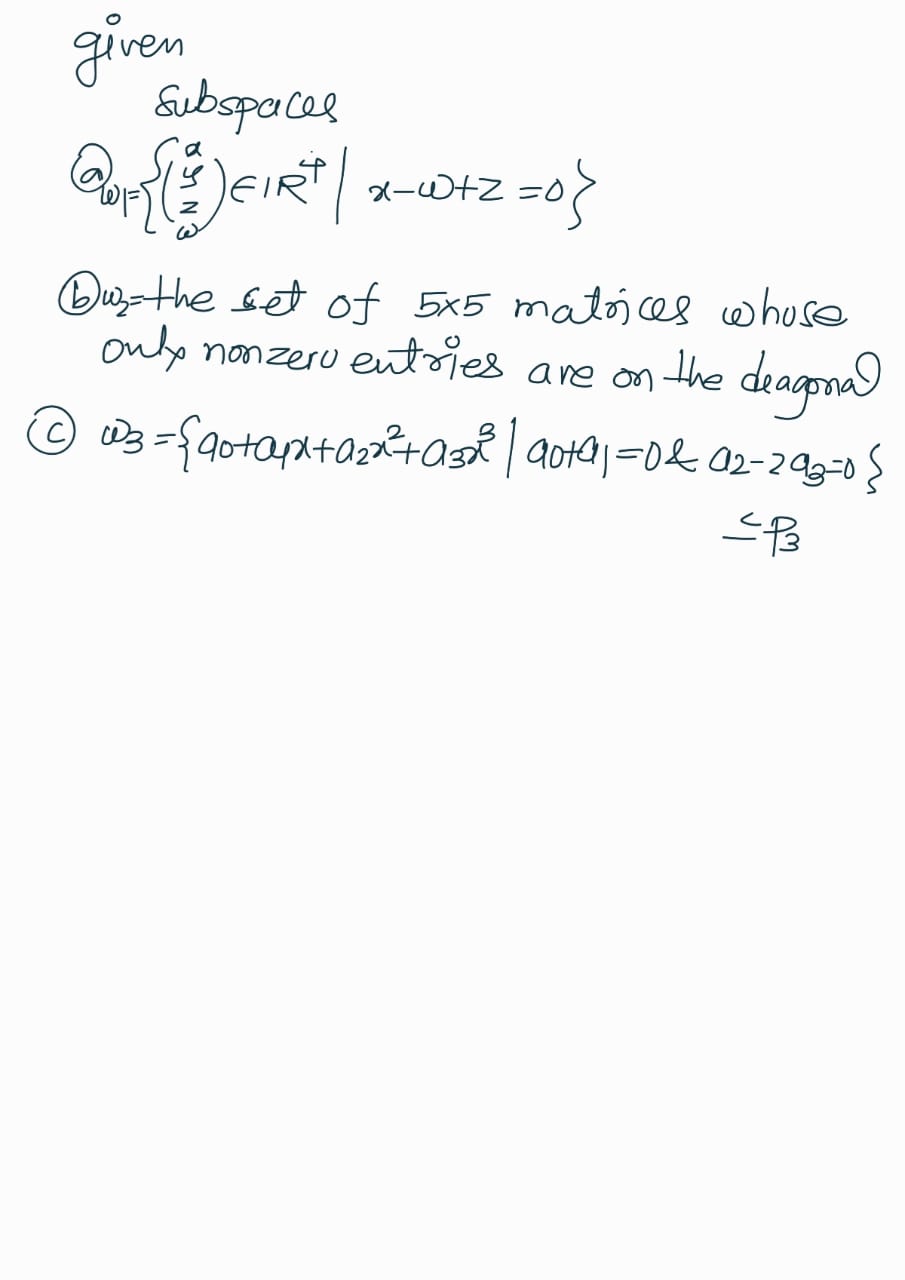 given
subspaces
ⓐ W1={(x y z w) ∈ IR⁴ | x-w+z=0}
ⓑ w2=the set of 5x5 matrices whose
only nonzero entries are on the deagonal
ⓒ w3={a0+a1x+a2x²+a3x³ | a0+a1=0 & a2-2a3=0}
≤P3